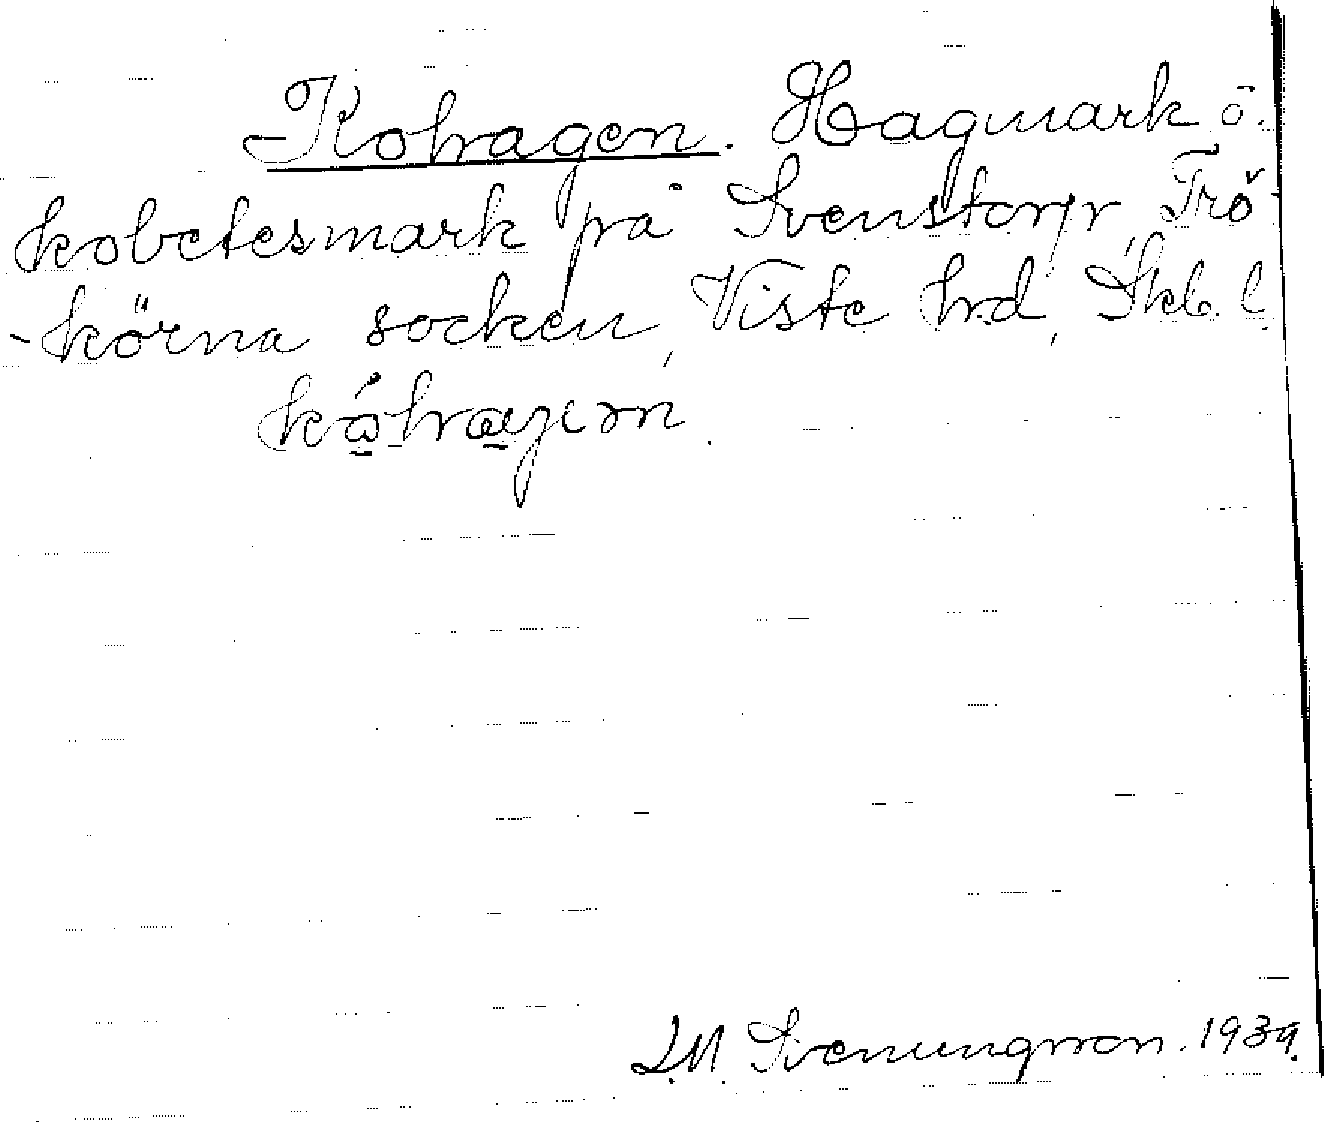 Kohagen. Hagmark o.
kobetesmark på Svenstorp, Trö-
-körna socken, Viste hrd, Skb. l.
L.M. Svenungsson. 1939.